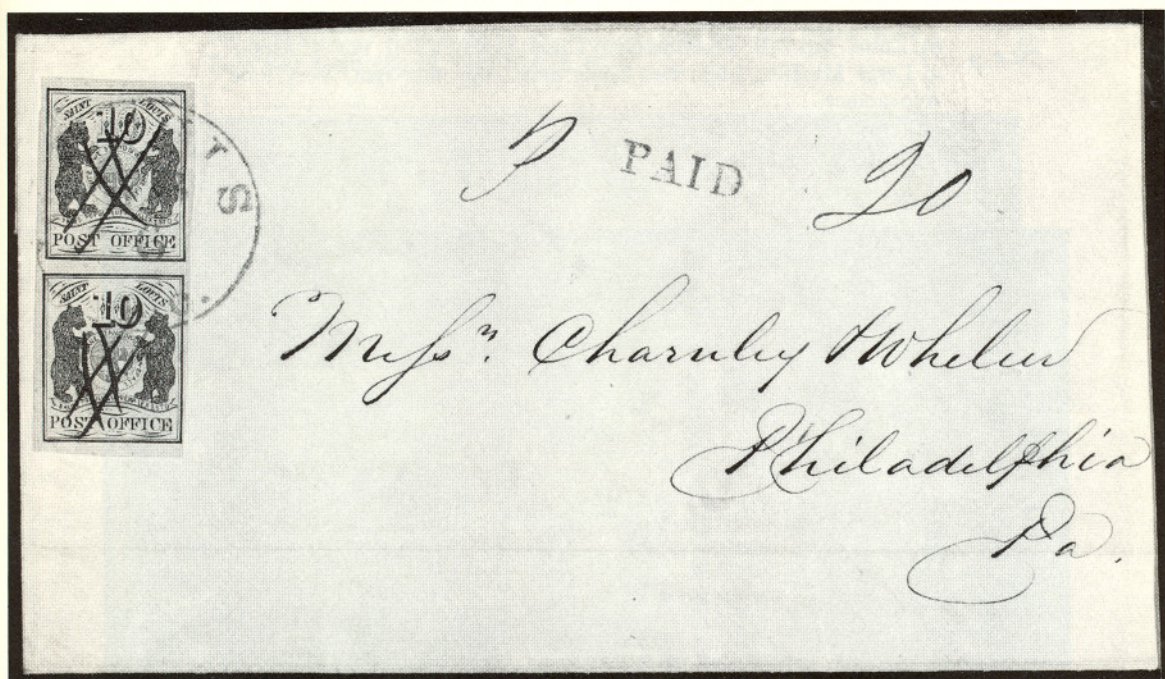 SAINT LOUIS
10
POST OFFICE
SAINT LOUIS
10
POST OFFICE
IS
P PAID 20
Messrs. Charnley & Whelen
Philadelphia
Pa.